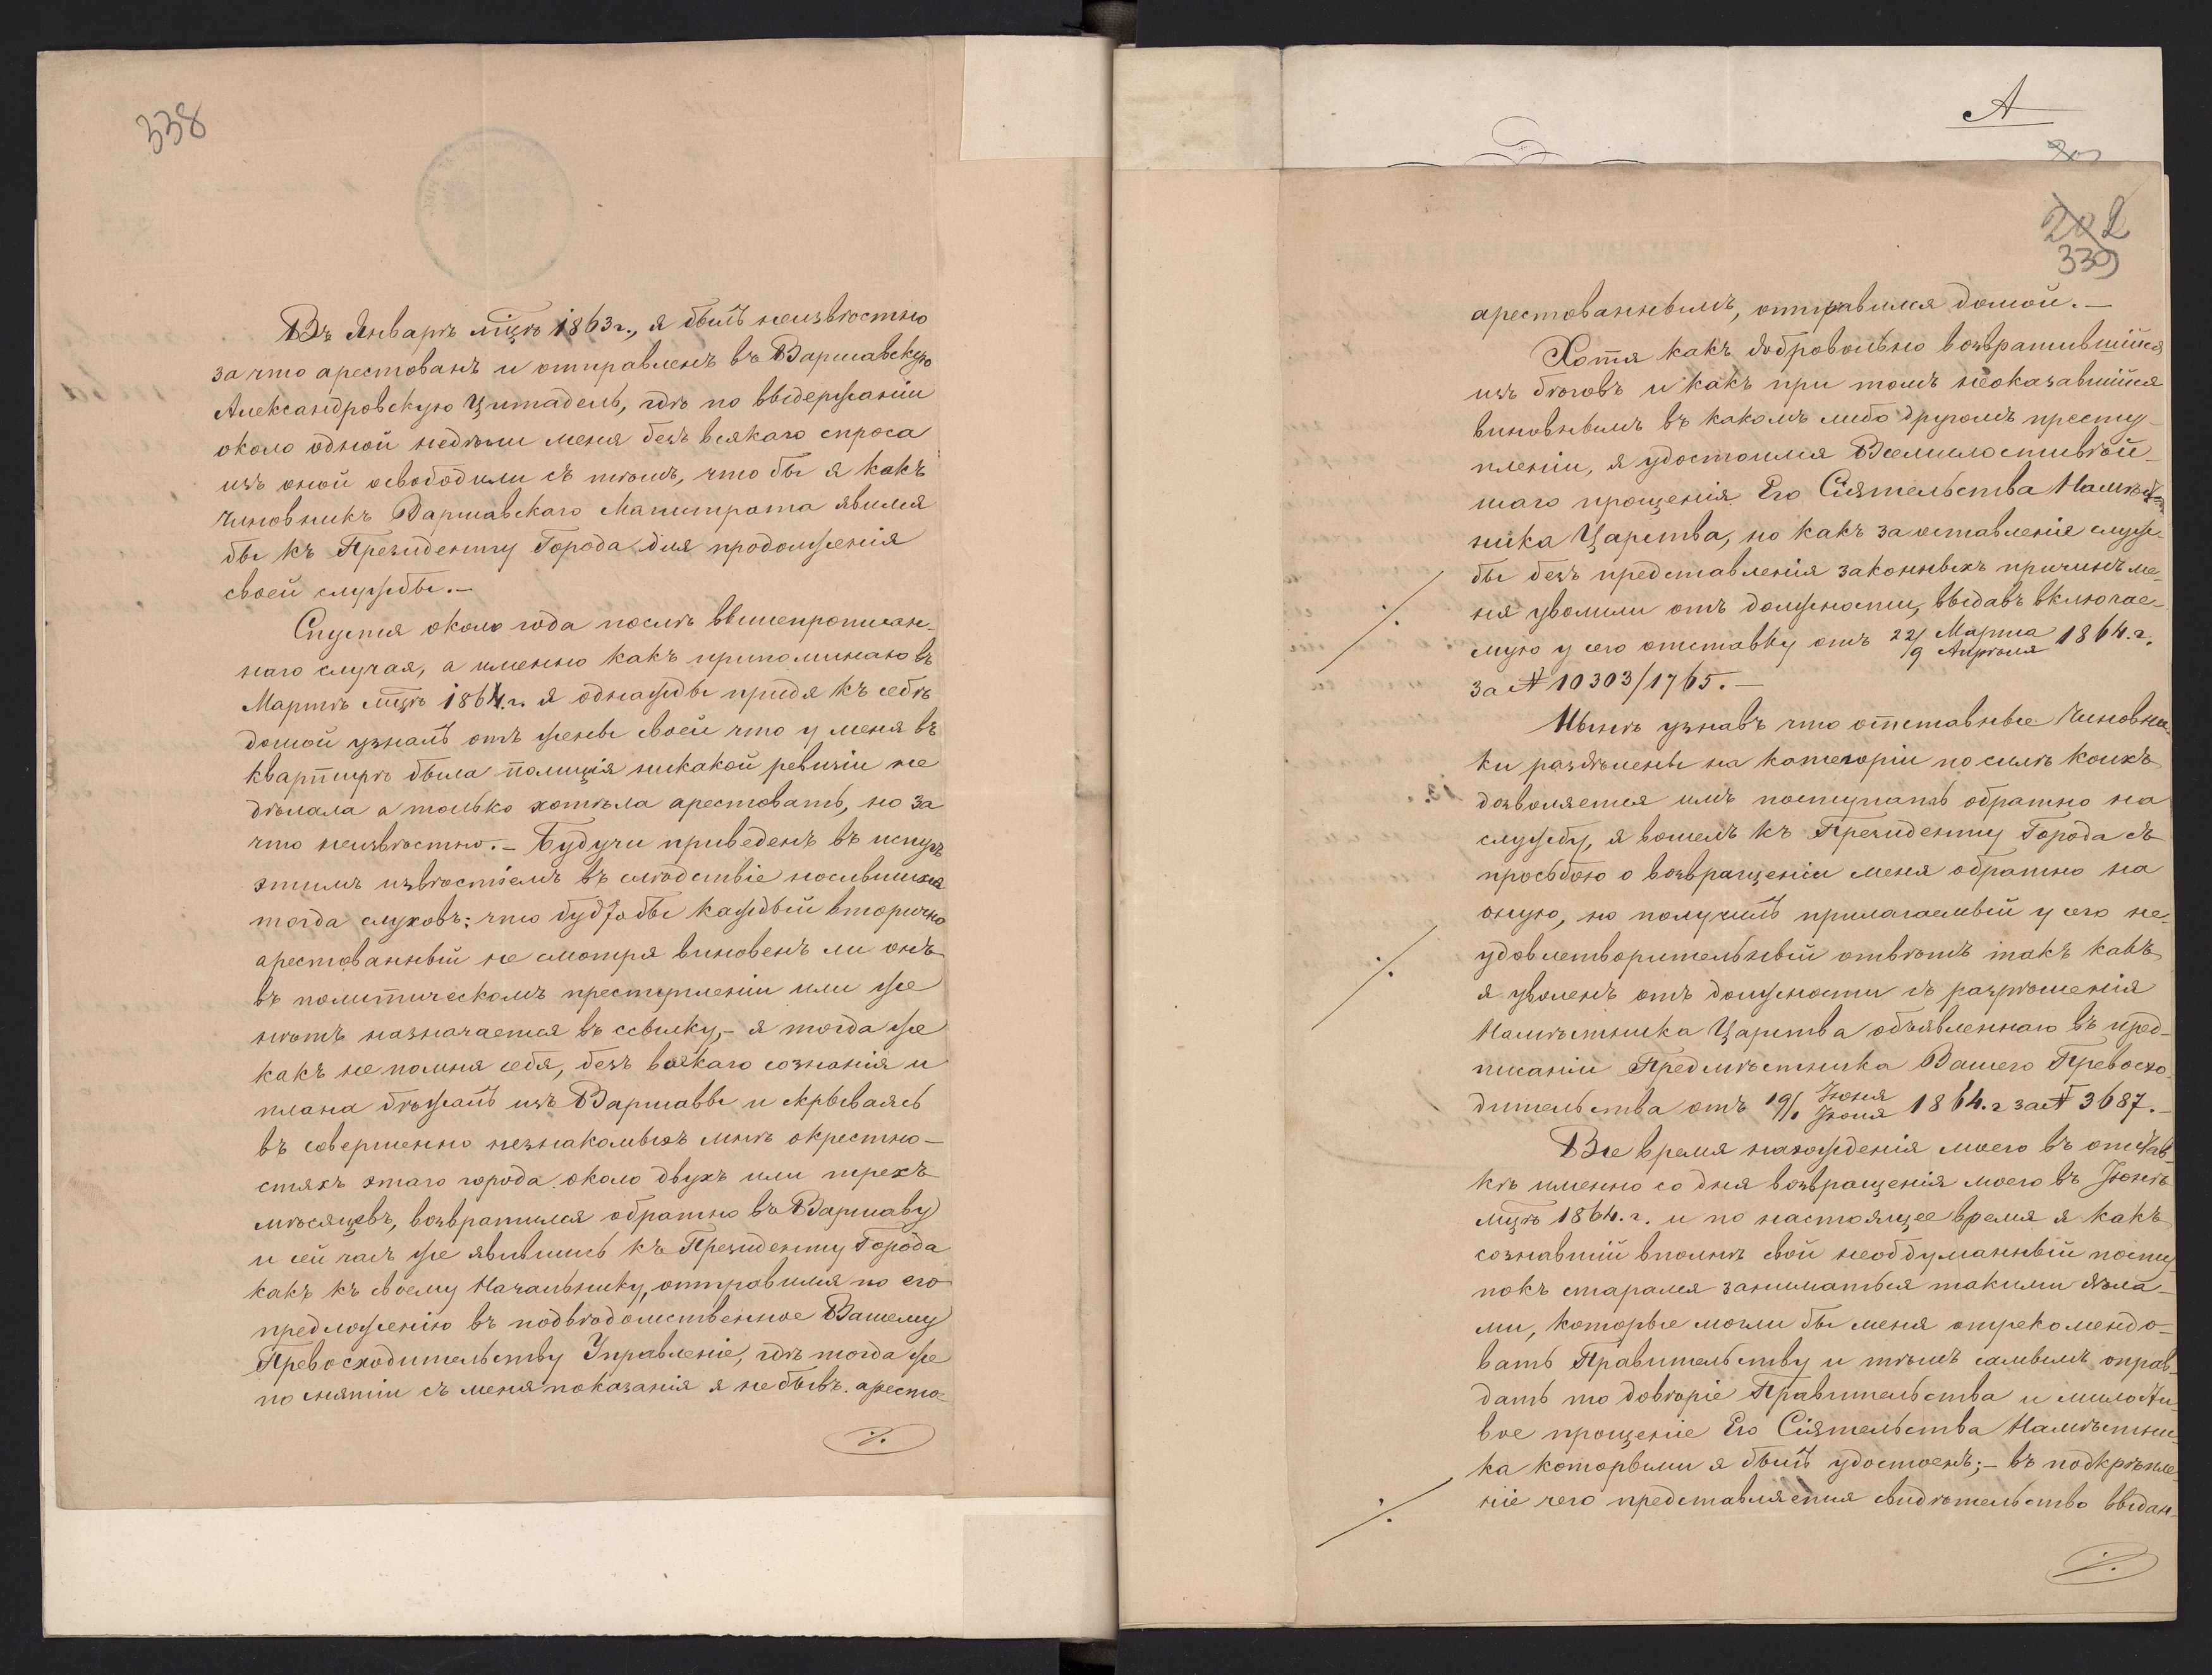 338
Въ Январѣ мцѣ 1863 г., я былъ неизвѣстно
за что арестованъ и отправленъ въ Варшавскую
Александровскую Цитадель, гдѣ по выдержаніи
около одной недѣли меня безъ всякаго спроса
изъ оной освободили съ тѣмъ, что бы я какъ
Чиновникъ Варшавскаго Магистрата явился
бы къ Президенту Города для продолженія
своей службы.—
Спустя около года послѣ вышепрописан-
наго случая, а именно какъ припоминаю въ
Мартѣ мцѣ 1864 г. я однажды придя къ себѣ
домой узналъ отъ жены своей что у меня въ
квартирѣ была полиція никакой ревизіи не
дѣлала а только хотѣла арестовать, но за
что неизвѣстно.— Будучи приведенъ въ испугъ
этимъ извѣстіемъ въ слѣдствіе носившихся
тогда слуховъ: что будто бы каждый вторично
арестованный не смотря виновенъ ли онъ
въ политическомъ преступленіи или же
нѣтъ назначается въ ссылку,— я тогда же
какъ не помня себя, безъ всякаго сознанія и
плана бѣжалъ изъ Варшавы и скрываясь
въ совершенно незнакомыхъ мнѣ окрестно-
стяхъ этаго города около двухъ или трехъ
мѣсяцевъ, возвратился обратно въ Варшаву
и сей часъ же явившись къ Президенту Города
какъ къ своему Начальнику, отправился по его
предложенію въ подвѣдомственное Вашему
Превосходительству Управленіе, гдѣ тогда же
по снятіи съ меня показанія я не бывъ аресто-
·/.
А
202
339
арестованнымъ, отправился домой.—
Хотя какъ добровольно возвратившійся
изъ бѣговъ и какъ при томъ неоказавшійся
виновнымъ въ какомъ либо другомъ престу-
пленіи, я удостоился Всемилостивѣй-
шаго прощенія Его Сіятельства Намѣст-
ника Царства, но какъ за оставленіе служ-
бы безъ представленія законныхъ причинъ ме-
ня уволили отъ должности, выдавъ включае-
мую у сего отставку отъ 22 Марта/9 Апрѣля 1864 г.
за № 10303/1765.—
Нынѣ узнавъ что отставные Чиновни-
ки раздѣлены на категоріи по силѣ коихъ
дозволяется имъ поступать обратно на
службу, я вошелъ къ Президенту Города съ
просьбою о возвращеніи меня обратно на
оную, но получилъ прилагаемый у сего не-
удовлетворительный отвѣтъ такъ какъ
я уволенъ отъ должности съ разрѣшенія
Намѣстника Царства объявленнаго въ пред-
писаніи Предмѣстника Вашего Превосхо-
дительства отъ 19 Іюня/1 Іюля 1864 г за № 3687.—
Все время нахожденія моего въ отстав-
кѣ именно со дня возвращенія моего въ Іюнѣ
мцѣ 1864 г. и по настоящее время я какъ
сознавшій вполнѣ свой необдуманный посту-
покъ старался заниматься такими дѣла-
ми, которые могли бы меня отрекомендо-
вать Правительству и тѣмъ самымъ оправ-
дать то довѣріе Правительства и милости-
вое прощеніе Его Сіятельства Намѣстни-
ка которыми я былъ удостоенъ;— въ подкрѣпле-
ніе чего представляется свидѣтельство выдан-
·/.